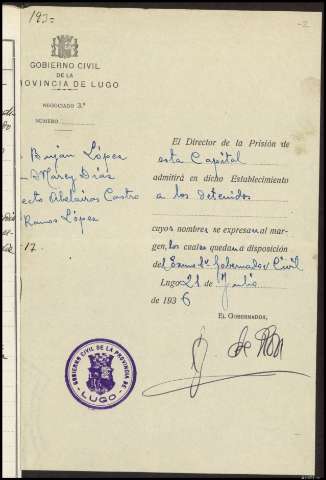 193=
GOBIERNO CIVIL
DE LA
PROVINCIA DE LUGO
NEGOCIADO 3.º
NÚMERO
Buján López
Marey Días
ecto Abelairas Castro
Ramos López
17
El Director de la Prisión de
esta Capital
admitirá en dicho Establecimiento
a los detenidos
cuyos nombres se expresan al mar-
gen, los cuales quedan a disposición
del Exmo Sr Gobernador Civil
Lugo 21 de Julio
de 1936
EL GOBERNADOR,
GOBIERNO CIVIL DE LA PROVINCIA DE
LUGO